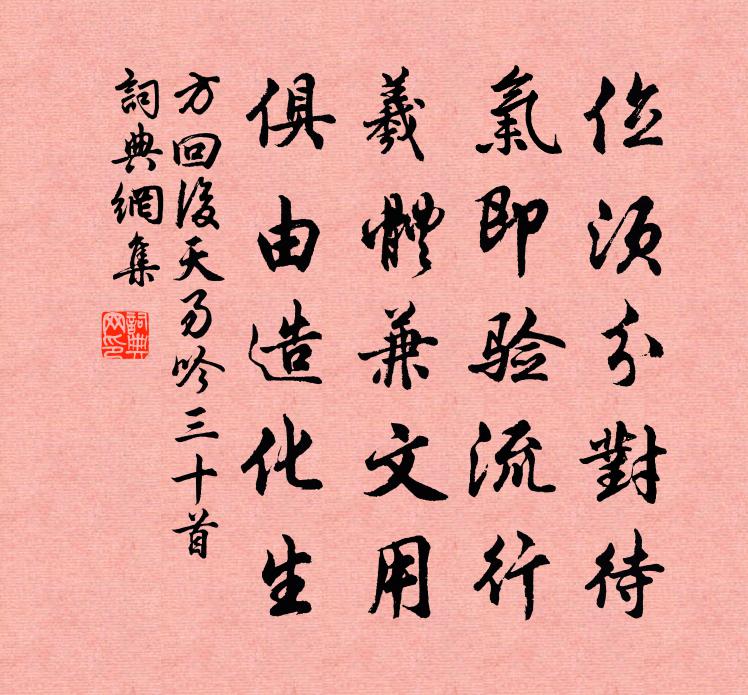 位須分對待
氣即验流行
羲體兼文用
俱由造化生
方回後天易吟三十首
詞典網集
詞典网印